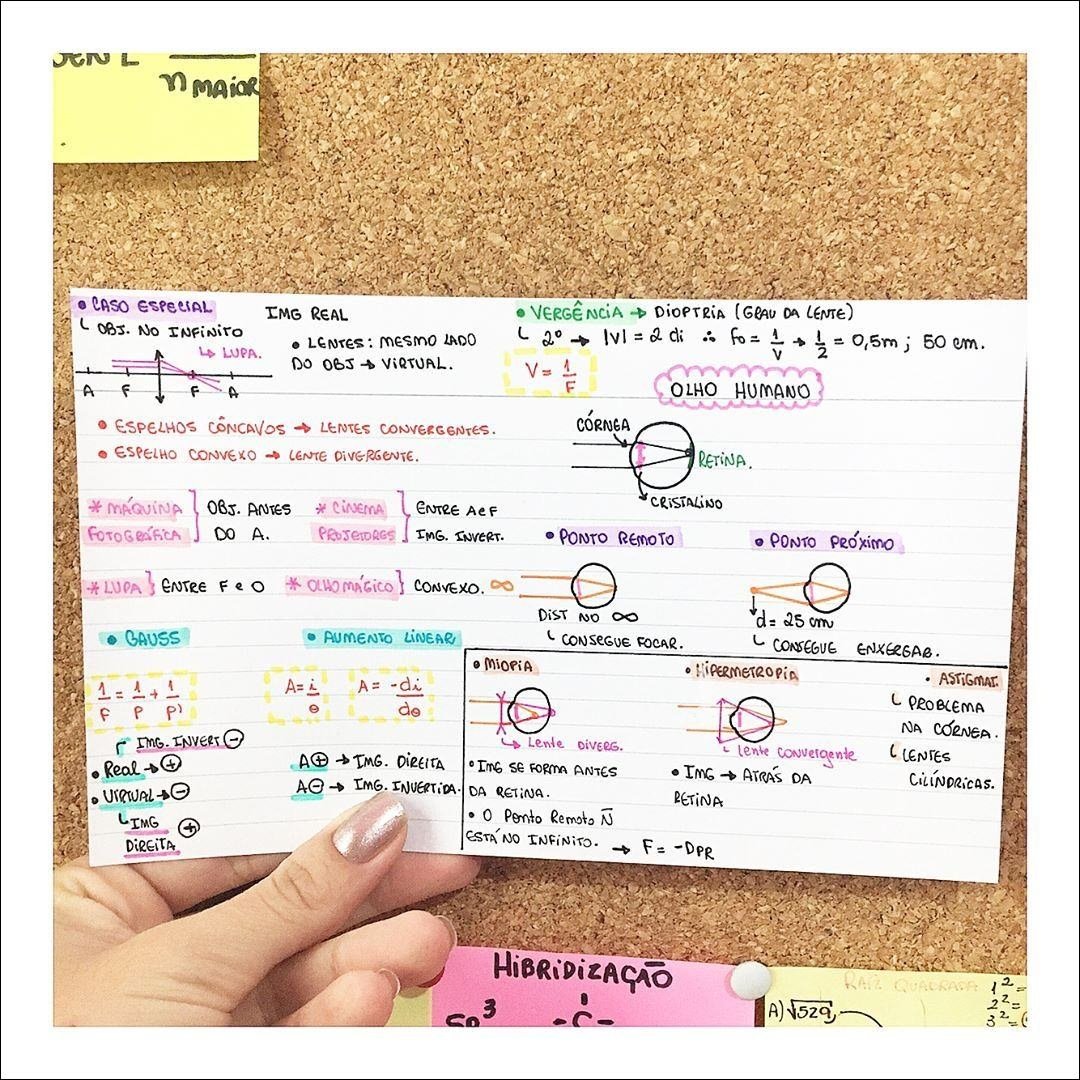 n MAIOR
• CASO ESPECIAL
└ OBJ. NO INFINITO
↳ LUPA.
A F F A
IMG REAL
• LENTES: MESMO LADO
DO OBJ → VIRTUAL.
• VERGÊNCIA → DIOPTRIA (GRAU DA LENTE)
└ 2º → |V| = 2 di ∴ fo = 1/V → 1/2 = 0,5m ; 50 cm.
V = 1/F
OLHO HUMANO
• ESPELHOS CÔNCAVOS → LENTES CONVERGENTES.
• ESPELHO CONVEXO → LENTE DIVERGENTE.
CÓRNEA
RETINA.
CRISTALINO
* MÁQUINA
FOTOGRÁFICA
OBJ. ANTES
DO A.
* CINEMA
PROJETORES
ENTRE A e F
IMG. INVERT.
* LUPA } ENTRE F e O
* OLHO MÁGICO } CONVEXO.
• PONTO REMOTO
∞
DIST NO ∞
└ CONSEGUE FOCAR.
• PONTO PRÓXIMO
d = 25 cm
└ CONSEGUE ENXERGAR.
• GAUSS
1/F = 1/P + 1/P'
IMG. INVERT ⊖
• Real → ⊕
• VIRTUAL → ⊖
└ IMG ⊕
DIREITA
• AUMENTO LINEAR
A = i/θ A = -di/dθ
A⊕ → IMG. DIREITA
A⊖ → IMG. INVERTIDA.
• MIOPIA
↳ Lente DIVERG.
• IMG SE FORMA ANTES
DA RETINA.
• O Ponto Remoto N̄
ESTÁ NO INFINITO. → F = -DPR
• HIPERMETROPIA
↳ Lente convergente
• IMG → ATRÁS DA
RETINA
• ASTIGMAT.
└ PROBLEMA
NA CÓRNEA.
└ LENTES
CILÍNDRICAS.
HIBRIDIZAÇÃO
SP³ -C-
RAIZ QUADRADA
A) √529
1² =
2² =
3² =